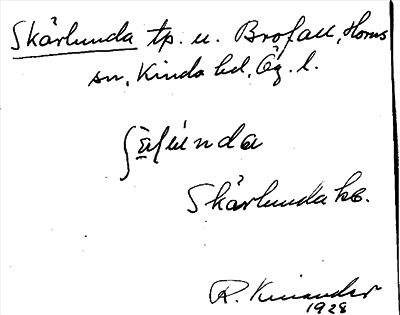 Skärlunda tp. u. Brofall, Horns
sn, Kinda hd, Ög. l.
Skärlunda
R. Kinander
1928